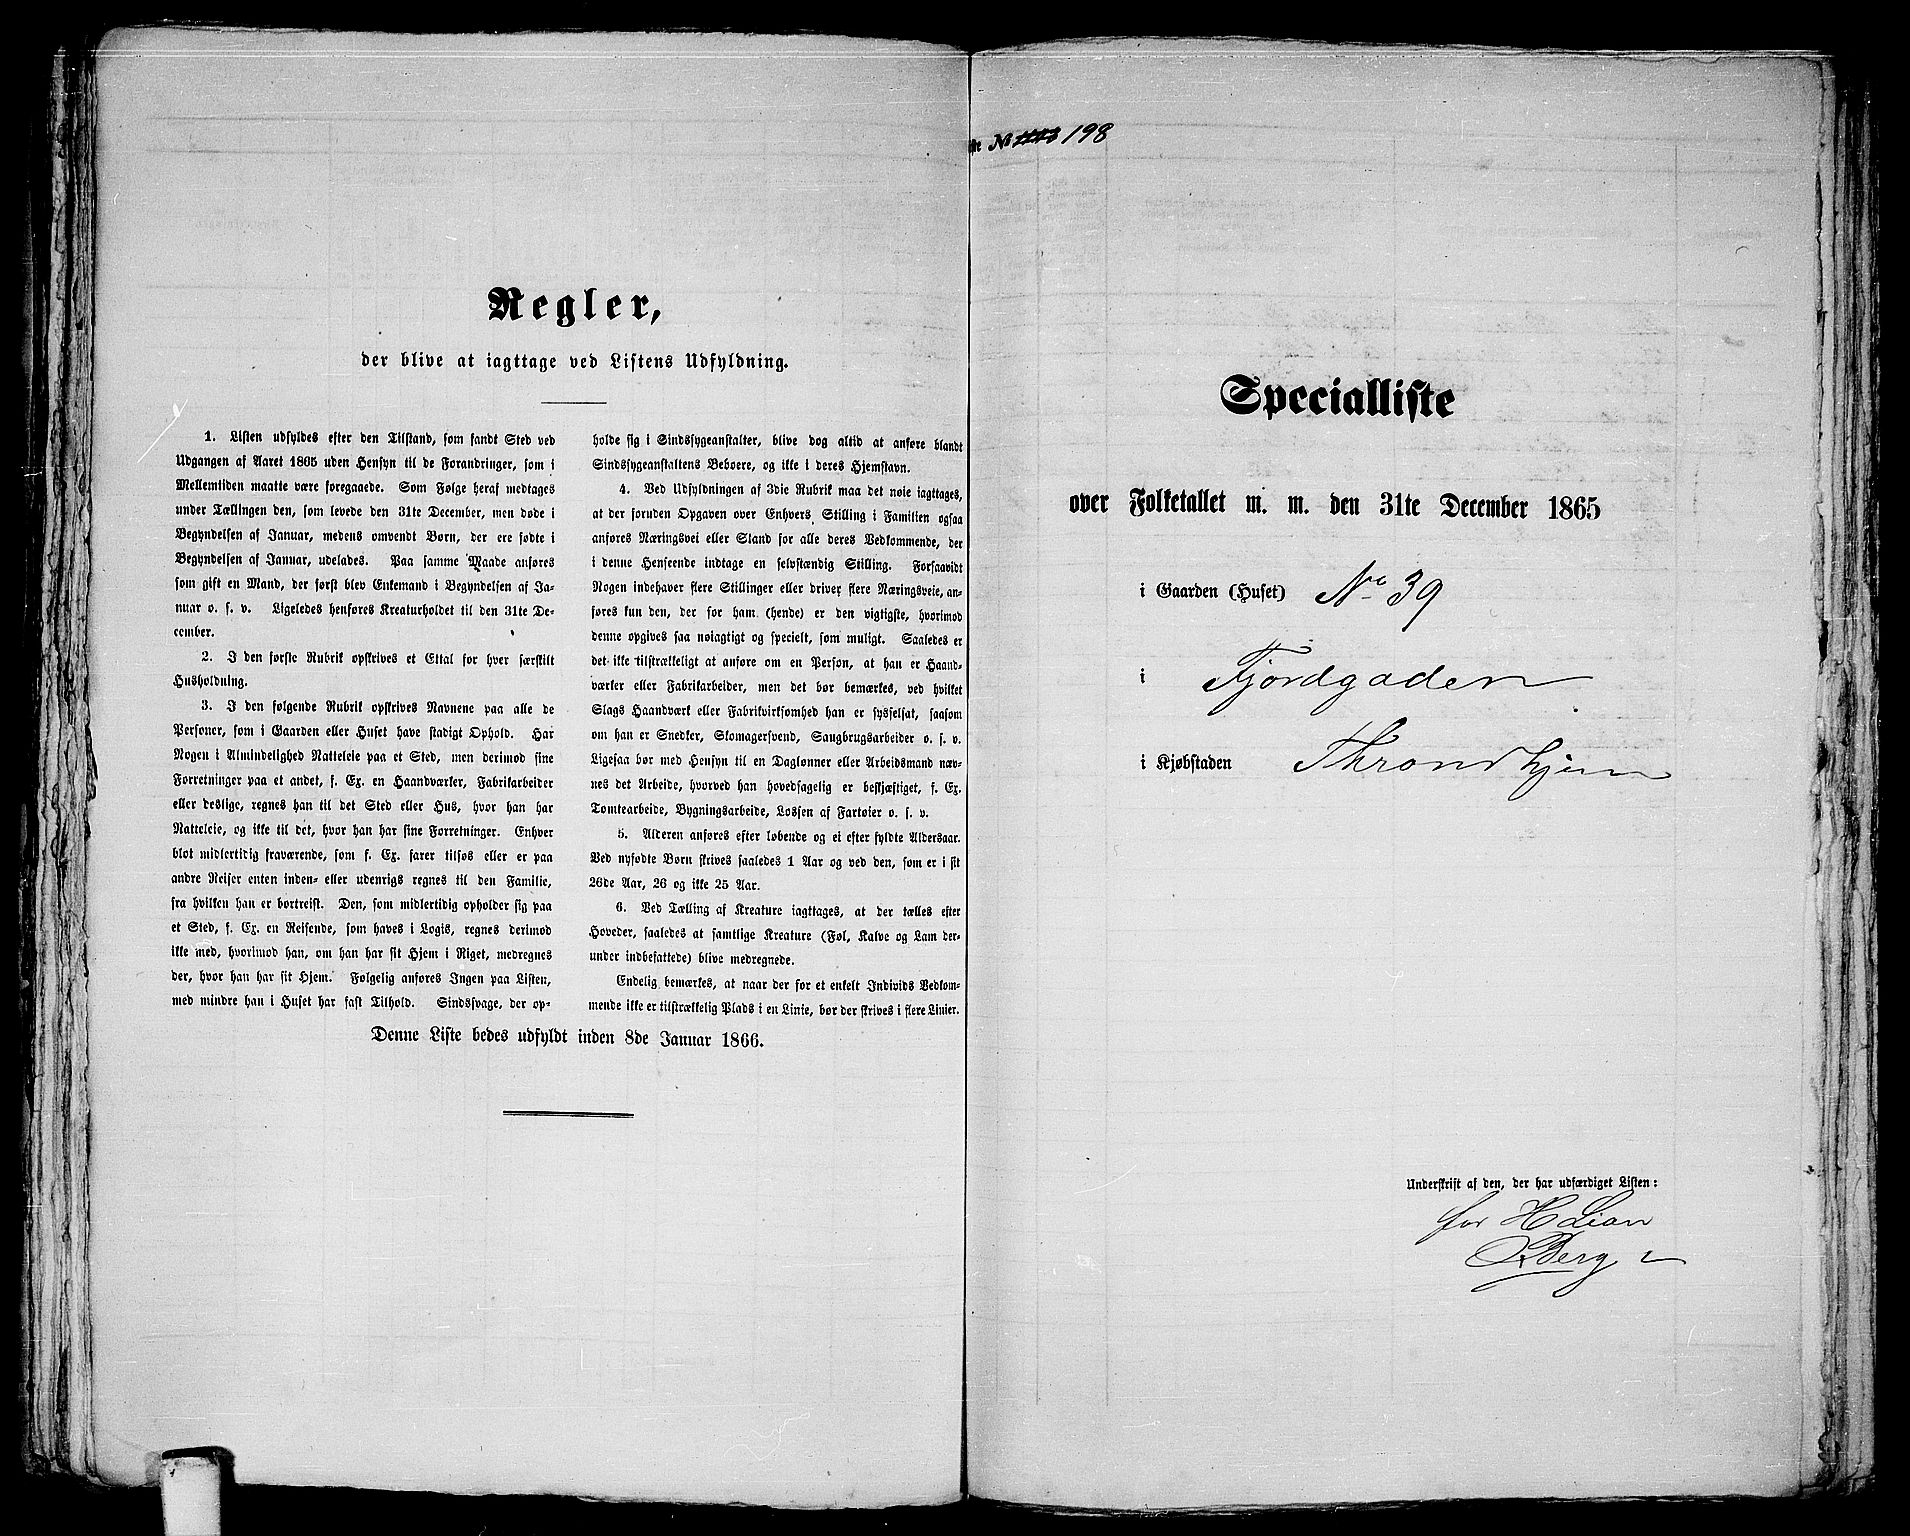 Regler,
der blive at iagttage ved Listens Udfyldning.
1. Listen udfyldes efter den Tilstand, som fandt Sted ved
Udgangen af Aaret 1865 uden Hensyn til de Forandringer, som i
Mellemtiden maatte være foregaaede. Som Følge heraf medtages
under Tællingen den, som levede den 31te December, men døde i
Begyndelsen af Januar, medens omvendt Børn, der ere fødte i
Begyndelsen af Januar, udelades. Paa samme Maade anføres
som gift en Mand, der først blev Enkemand i Begyndelsen af Ja-
nuar o. s. v. Ligeledes henføres Kreaturholdet til den 31te De-
cember.
2. I den første Rubrik opskrives et Ettal for hver særskilt
Husholdning.
3. I den følgende Rubrik opskrives Navnene paa alle de
Personer, som i Gaarden eller Huset have stadigt Ophold. Har
Nogen i Almindelighed Natteleie paa et Sted, men derimod sine
Forretninger paa et andet, f. Ex. en Haandværker, Fabrikarbeider
eller deslige, regnes han til det Sted eller Hus, hvor han har
Natteleie, og ikke til det, hvor han har sine Forretninger. Enhver
blot midlertidig fraværende, som f. Ex. farer tilsøs eller er paa
andre Reiser enten inden- eller udenrigs regnes til den Familie,
fra hvilken han er bortreist. Den, som midlertidig opholder sig paa
et Sted, f. Ex. en Reisende, som haves i Logis, regnes derimod
ikke med, hvorimod han, om han har sit Hjem i Riget, medregnes
der, hvor han har sit Hjem. Følgelig anføres Ingen paa Listen,
med mindre han i Huset har fast Tilhold. Sindssvage, der op-
holde sig i Sindssygeanstalter, blive dog altid at anføre blandt
Sindssygeanstaltens Beboere, og ikke i deres Hjemstavn.
4. Ved Udfyldningen af 3die Rubrik maa det nøie iagttages,
at der foruden Opgaven over Enhvers Stilling i Familien ogsaa
anføres Næringsvei eller Stand for alle deres Vedkommende, der
i denne Henseende indtage en selvstændig Stilling. Forsaavidt
Nogen indehaver flere Stillinger eller driver flere Næringsveie, an-
føres kun den, der for ham (hende) er den vigtigste, hvorimod
denne opgives saa nøiagtigt og specielt, som muligt. Saaledes er
det ikke tilstrækkeligt at anføre om en Person, at han er Haand-
værker eller Fabrikarbeider, men det bør bemærkes, ved hvilket
Slags Haandværk eller Fabrikvirksomhed han er sysselsat, saasom
om han er Snedker, Skomagersvend, Saugbrugsarbeider o. s. v.
Ligesaa bør med Hensyn til en Daglønner eller Arbeidsmand næv-
nes det Arbeide, hvorved han hovedsagelig er beskjæftiget, f. Ex.
Tomtearbeide, Bygningsarbeide, Lossen af Fartøier o. s. v.
5. Alderen anføres efter løbende og ei efter fyldte Aldersaar.
Ved nyfødte Børn skrives saaledes 1 Aar og ved den, som er i sit
26de Aar, 26 og ikke 25 Aar.
6. Ved Tælling af Kreature iagttages, at der tælles efter
Hoveder, saaledes at samtlige Kreature (Føl, Kalve og Lam der-
under indbefattede) blive medregnede.
Endelig bemærkes, at naar der for et enkelt Individs Vedkom-
mende ikke er tilstrækkelig Plads i en Linie, bør der skrives i flere Linier.
Denne Liste bedes udfyldt inden 8de Januar 1866.
No 198
Specialliste
over Folketallet m. m. den 31te December 1865
i Gaarden (Huset) No 39
i Fjordgaden
i Kjøbstaden Throndhjem
Underskrift af den, der har udfærdiget Listen:
for H Lian
Berg